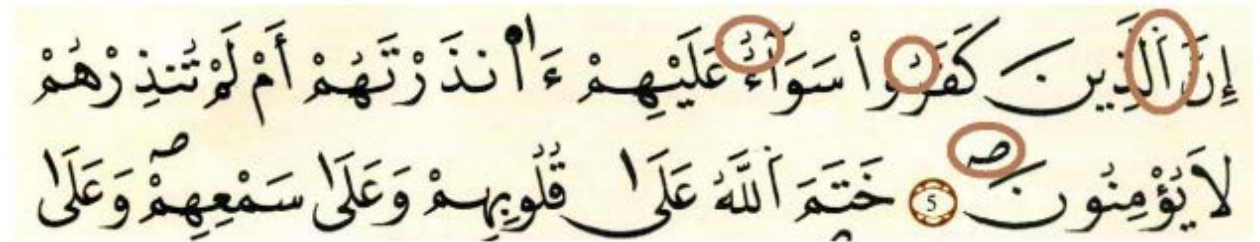 إِنَّ اَ۬لذِينَ كَفَرُواْ سَوَآءٌ عَلَيْهِمْ ءَآ۬نذَرْتَهُمْ أَمْ لَمْ تُنذِرْهُمْ
لَا يُؤْمِنُونَۖ 5 خَتَمَ اَ۬للَّهُ عَلَىٰ قُلُوبِهِمْ وَعَلَىٰ سَمْعِهِمْۖ وَعَلَىٰ